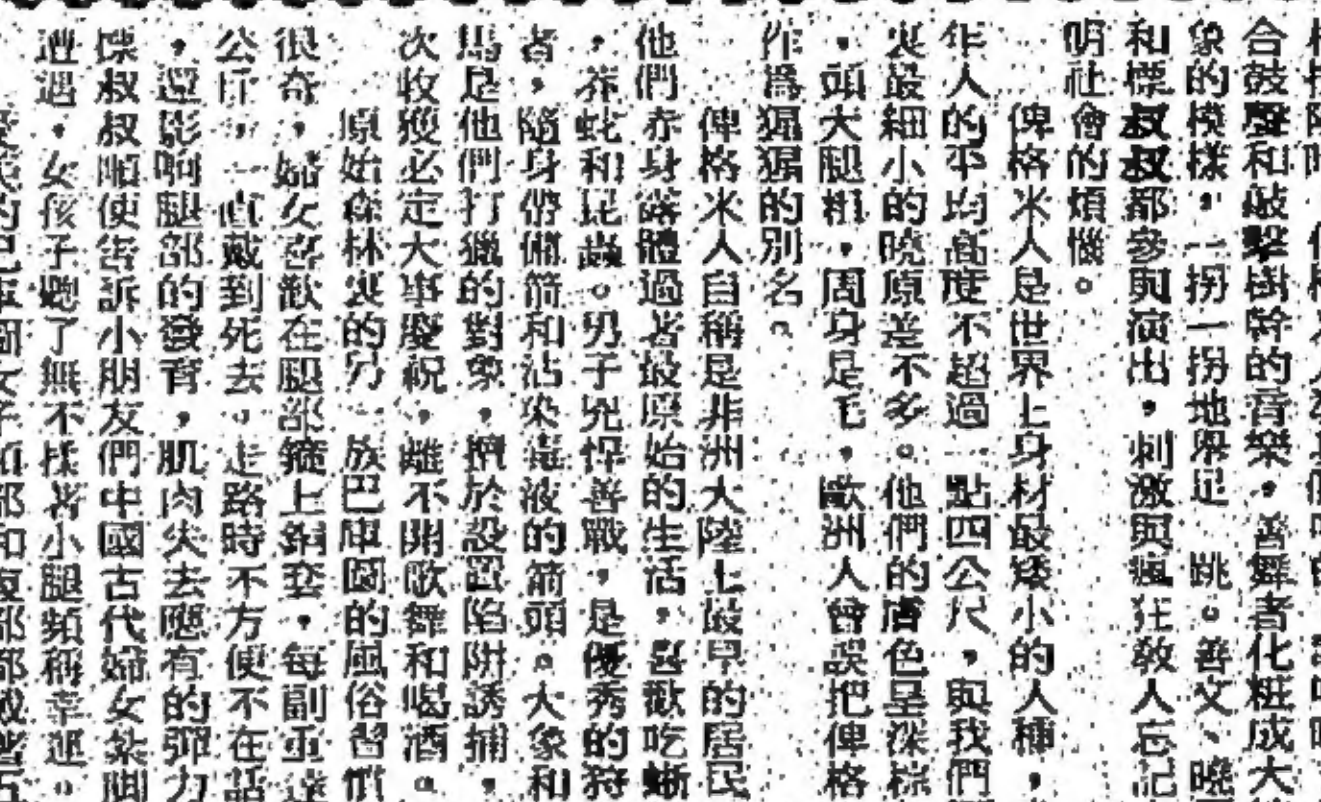 合鼓聲和敲擊樹幹的音樂，善舞者化粧成大
象的模樣，一拐一拐地學足 跳。善文、曉
和標叔叔都參與演出，刺激與瘋狂教人忘記
明社會的煩惱。
俾格米人是世界上身材最矮小的人種，
年人的平均高度不超過一點四公尺，與我們
裏最細小的曉原差不多。他們的膚色呈深棕
，頭大腿粗，周身是毛，歐洲人曾誤把俾格
作爲猩猩的別名。
俾格米人自稱是非洲大陸上最早的居民
他們赤身露體過着最原始的生活，喜歡吃蜥
，莽蛇和昆蟲。男子兇悍善戰，是優秀的狩
者，隨身帶備箭和沾染毒液的箭頭。大象和
馬是他們打獵的對象，擅於設置陷阱誘捕，
次收獲必定大事慶祝，離不開歌舞和喝酒。
原始森林裏的另一族巴庫圖的風俗習慣
很奇，婦女喜歡在腿部箍上銅套，每副重達
公斤，一直戴到死去。走路時不方便不在話
，還影响腿部的發育，肌肉失去應有的彈力
標叔叔順便告訴小朋友們中國古代婦女紮脚
遭遇，女孩子聽了無不揉着小腿頻稱幸運。